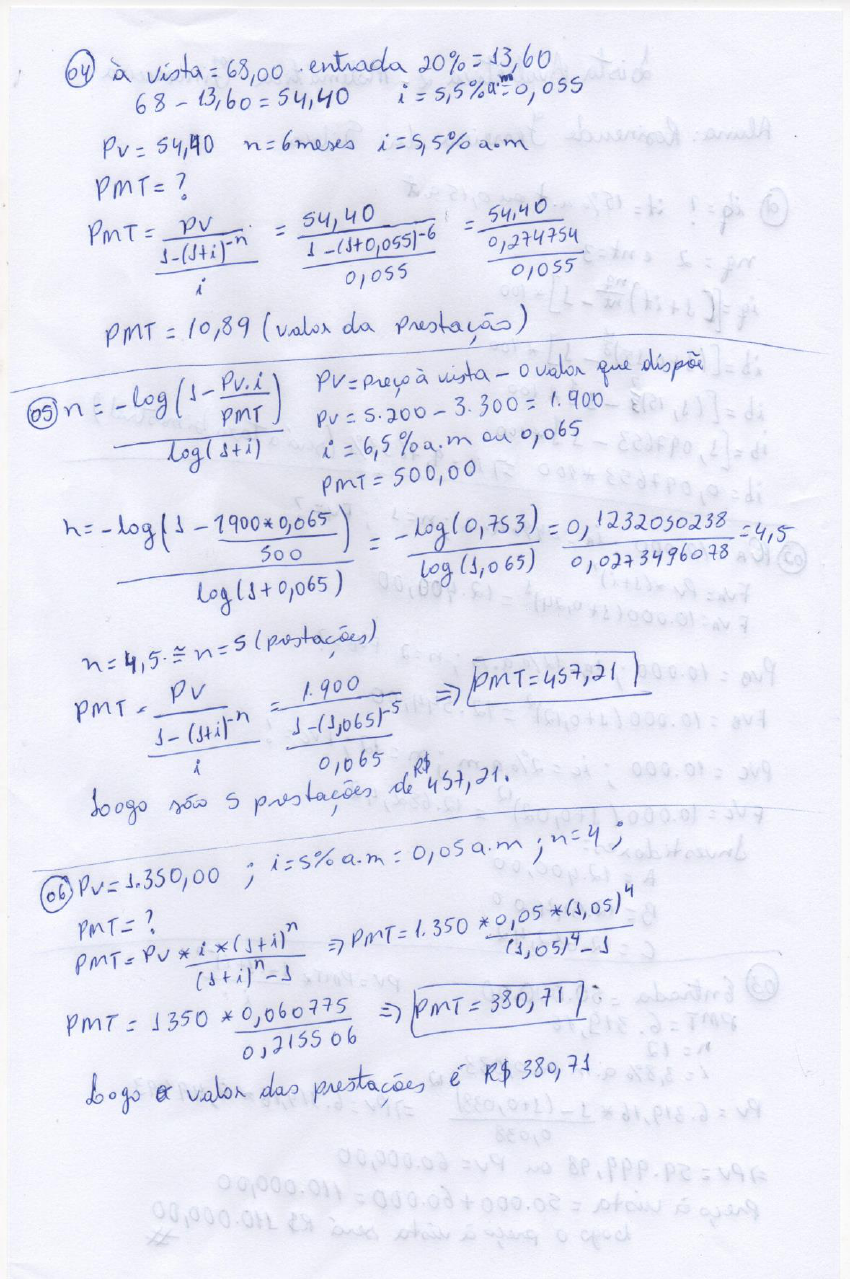 04 à vista = 68,00 . entrada 20% = 13,60
68 - 13,60 = 54,40 i = 5,5% a.m = 0,055
PV = 54,40 n = 6 meses i = 5,5% a.m
PMT = ?
PMT = PV / (1-(1+i)^-n / i) = 54,40 / (1-(1+0,055)^-6 / 0,055) = 54,40 / (0,274754 / 0,055)
PMT = 10,89 (valor da prestação)
05 n = -log(1 - PV.i / PMT) / log(1+i)
PV = preço à vista - o valor que dispõi
PV = 5.200 - 3.300 = 1.900
i = 6,5% a.m ou 0,065
PMT = 500,00
n = -log(1 - 1900*0,065 / 500) / log(1+0,065) = -log(0,753) / log(1,065) = 0,1232050238 / 0,0273496078 = 4,5
n = 4,5 ≅ n = 5 (postações)
PMT = PV / (1-(1+i)^-n / i) = 1.900 / (1-(1,065)^-5 / 0,065) ⇒ PMT = 457,21
Logo são 5 prestações de R$ 457,21.
06 PV = 1.350,00 ; i = 5% a.m = 0,05 a.m ; n = 4 ;
PMT = ?
PMT = PV * i*(1+i)^n / (1+i)^n - 1 ⇒ PMT = 1.350 * 0,05*(1,05)^4 / (1,05)^4 - 1
PMT = 1350 * 0,060775 / 0,215506 ⇒ PMT = 380,71
Logo o valor das prestações é R$ 380,71